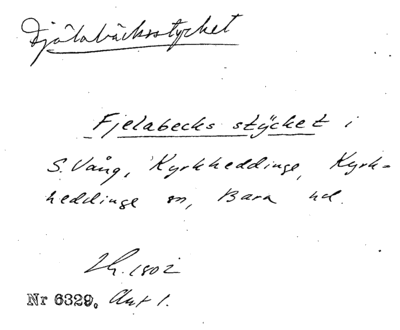 Fjälabäcksstycket
Fjelabecks stÿcket i
S. Vång, Kyrkheddinge, Kyrk-
heddinge sn, Bara hd.
1802
Nr 6329, Akt 1.